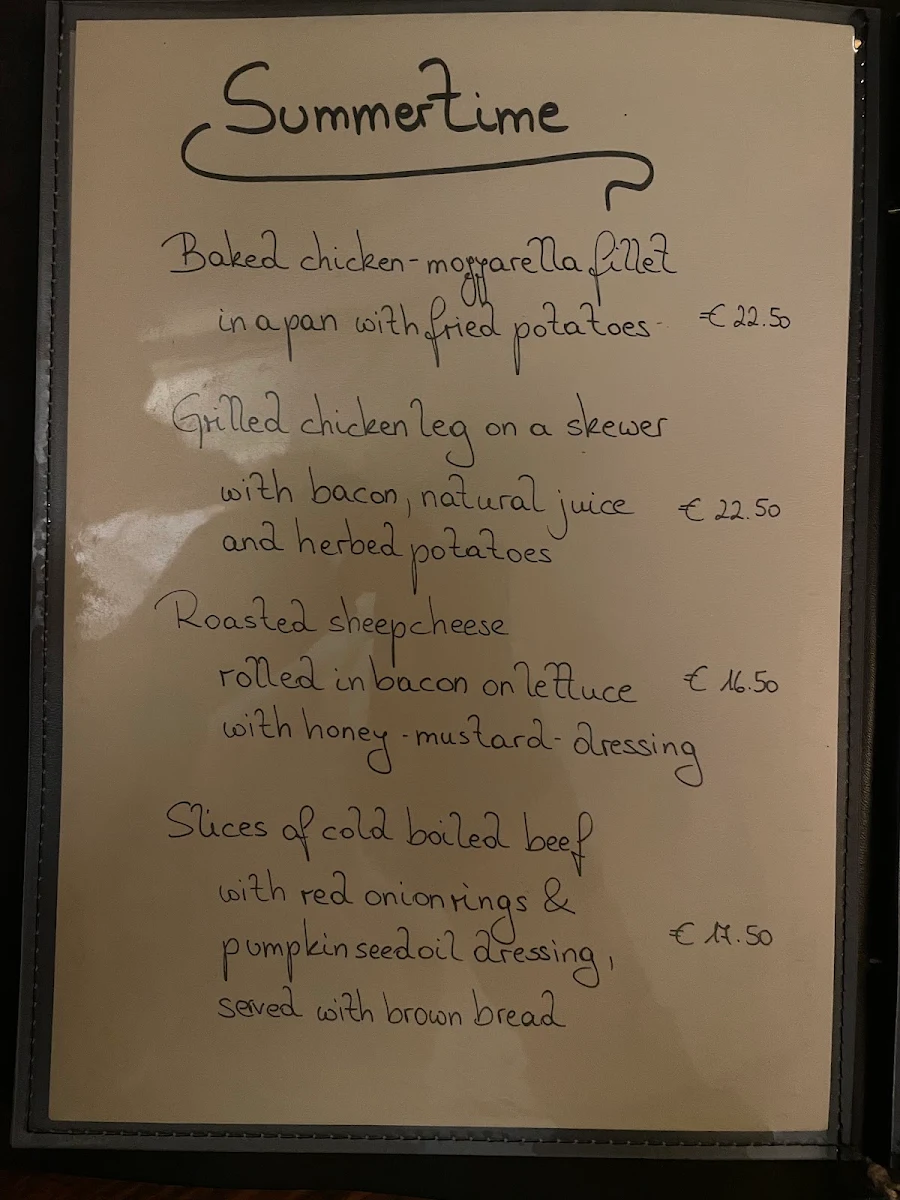 Summertime
Baked chicken-mozzarella fillet
in a pan with fried potatoes € 22.50
Grilled chicken leg on a skewer
with bacon, natural juice € 22.50
and herbed potatoes
Roasted sheepcheese
rolled in bacon on lettuce € 16.50
with honey-mustard-dressing
Slices of cold boiled beef
with red onionrings &
pumpkinseedoil dressing, € 17.50
served with brown bread